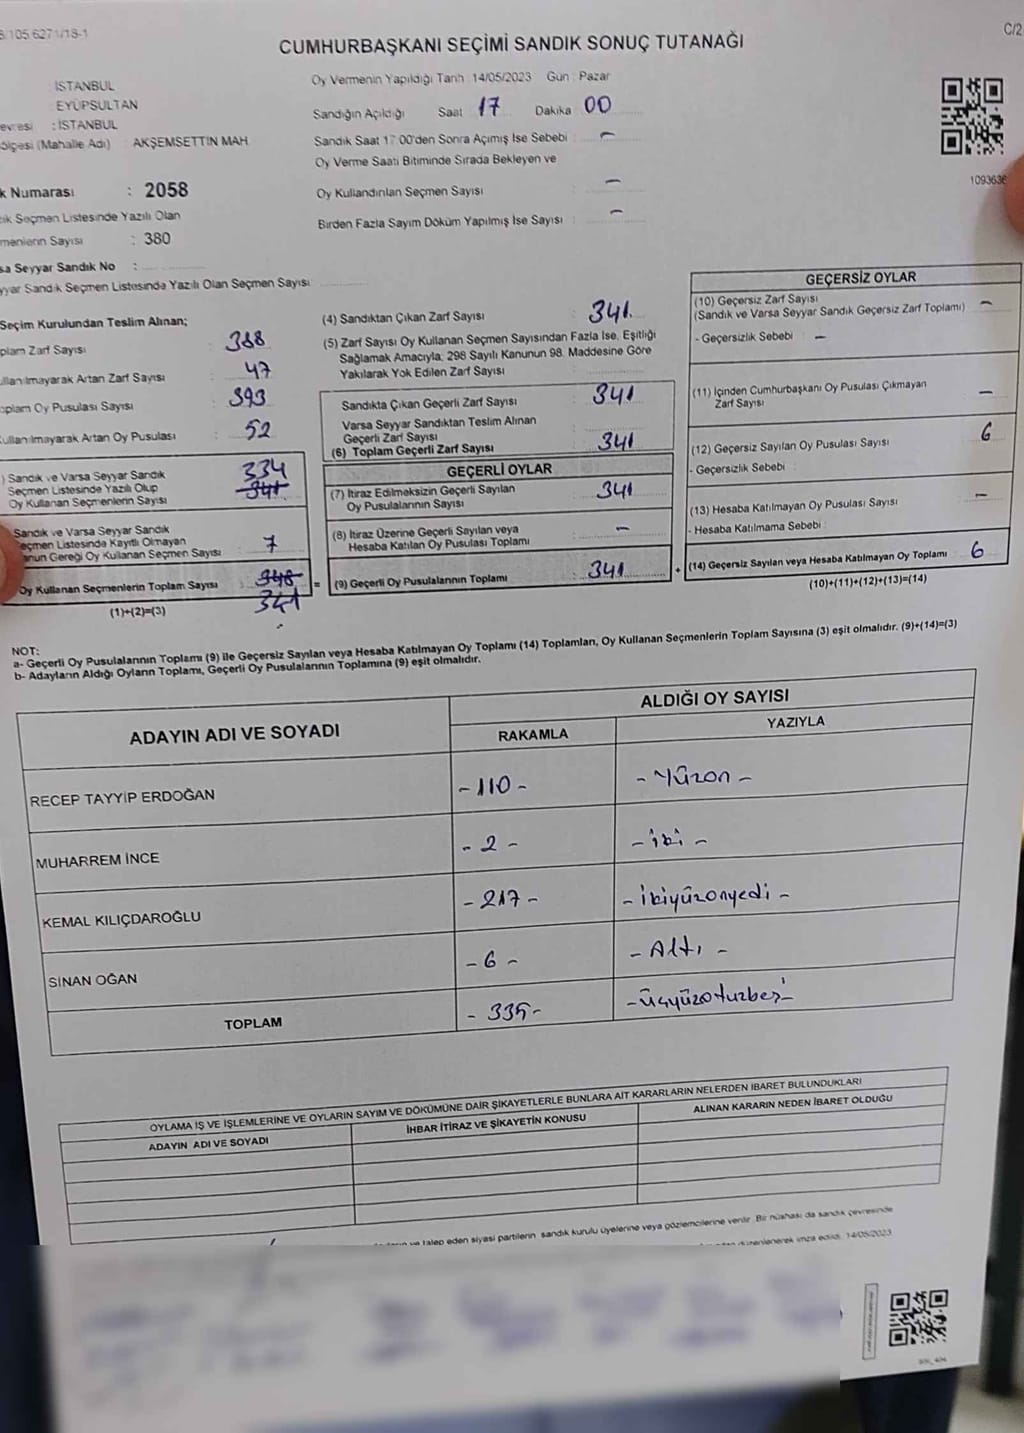 105 6271/18-1
C/2
CUMHURBAŞKANI SEÇİMİ SANDIK SONUÇ TUTANAĞI
: İSTANBUL
: EYÜPSULTAN
: İSTANBUL
ölgesi (Mahalle Adı) : AKŞEMSETTİN MAH.
k Numarası : 2058
Seçmen Listesinde Yazılı Olan
menlerin Sayısı : 380
sa Seyyar Sandık No :
yyar Sandık Seçmen Listesinde Yazılı Olan Seçmen Sayısı:
Oy Vermenin Yapıldığı Tarih :14/05/2023 Gün : Pazar
Sandığın Açıldığı Saat 17 Dakika 00
Sandık Saat 17:00'den Sonra Açımış İse Sebebi : -
Oy Verme Saati Bitiminde Sırada Bekleyen ve
Oy Kullandırılan Seçmen Sayısı : -
Birden Fazla Sayım Döküm Yapılmış İse Sayısı : -
1093636
Seçim Kurulundan Teslim Alınan;
plam Zarf Sayısı : 388
ullanılmayarak Artan Zarf Sayısı : 47
oplam Oy Pusulası Sayısı : 393
Kullanılmayarak Artan Oy Pusulası : 52
) Sandık ve Varsa Seyyar Sandık
Seçmen Listesinde Yazılı Olup
Oy Kullanan Seçmenlerin Sayısı
334
341
Sandık ve Varsa Seyyar Sandık
eçmen Listesinde Kayıtlı Olmayan
anun Gereği Oy Kullanan Seçmen Sayısı : 7
Oy Kullanan Seçmenlerin Toplam Sayısı : 348
341
(1)+(2)=(3)
(4) Sandıktan Çıkan Zarf Sayısı : 341
(5) Zarf Sayısı Oy Kullanan Seçmen Sayısından Fazla İse, Eşitliği
Sağlamak Amacıyla; 298 Sayılı Kanunun 98. Maddesine Göre
Yakılarak Yok Edilen Zarf Sayısı
Sandıkta Çıkan Geçerli Zarf Sayısı : 341
Varsa Seyyar Sandıktan Teslim Alınan
Geçerli Zarf Sayısı
(6) Toplam Geçerli Zarf Sayısı : 341
GEÇERLİ OYLAR
(7) İtiraz Edilmeksizin Geçerli Sayılan
Oy Pusulalarının Sayısı : 341
(8) İtiraz Üzerine Geçerli Sayılan veya
Hesaba Katılan Oy Pusulası Toplamı : -
= (9) Geçerli Oy Pusulalarının Toplamı : 341 +
GEÇERSİZ OYLAR
(10) Geçersiz Zarf Sayısı
(Sandık ve Varsa Seyyar Sandık Geçersiz Zarf Toplamı) -
- Geçersizlik Sebebi : -
(11) İçinden Cumhurbaşkanı Oy Pusulası Çıkmayan
Zarf Sayısı -
(12) Geçersiz Sayılan Oy Pusulası Sayısı 6
- Geçersizlik Sebebi :
(13) Hesaba Katılmayan Oy Pusulası Sayısı -
- Hesaba Katılmama Sebebi :
(14) Geçersiz Sayılan veya Hesaba Katılmayan Oy Toplamı 6
(10)+(11)+(12)+(13)=(14)
NOT:
a- Geçerli Oy Pusulalarının Toplamı (9) ile Geçersiz Sayılan veya Hesaba Katılmayan Oy Toplamı (14) Toplamları, Oy Kullanan Seçmenlerin Toplam Sayısına (3) eşit olmalıdır. (9)+(14)=(3)
b- Adayların Aldığı Oyların Toplamı, Geçerli Oy Pusulalarının Toplamına (9) eşit olmalıdır.
ADAYIN ADI VE SOYADI
ALDIĞI OY SAYISI
RAKAMLA YAZIYLA
RECEP TAYYİP ERDOĞAN -110- -Yüzon-
MUHARREM İNCE -2- -iki-
KEMAL KILIÇDAROĞLU -217- -İkiyüzonyedi-
SİNAN OĞAN -6- -Altı-
TOPLAM -335- -Üçyüzotuzbeş-
OYLAMA İŞ VE İŞLEMLERİNE VE OYLARIN SAYIM VE DÖKÜMÜNE DAİR ŞİKAYETLERLE BUNLARA AİT KARARLARIN NELERDEN İBARET BULUNDUKLARI
ADAYIN ADI VE SOYADI İHBAR İTİRAZ VE ŞİKAYETİN KONUSU ALINAN KARARIN NEDEN İBARET OLDUĞU
ve talep eden siyasi partilerin sandık kurulu üyelerine veya gözlemcilerine verilir. Bir nüshası da sandık çevresinde
düzenlenerek imza edildi. 14/05/2023